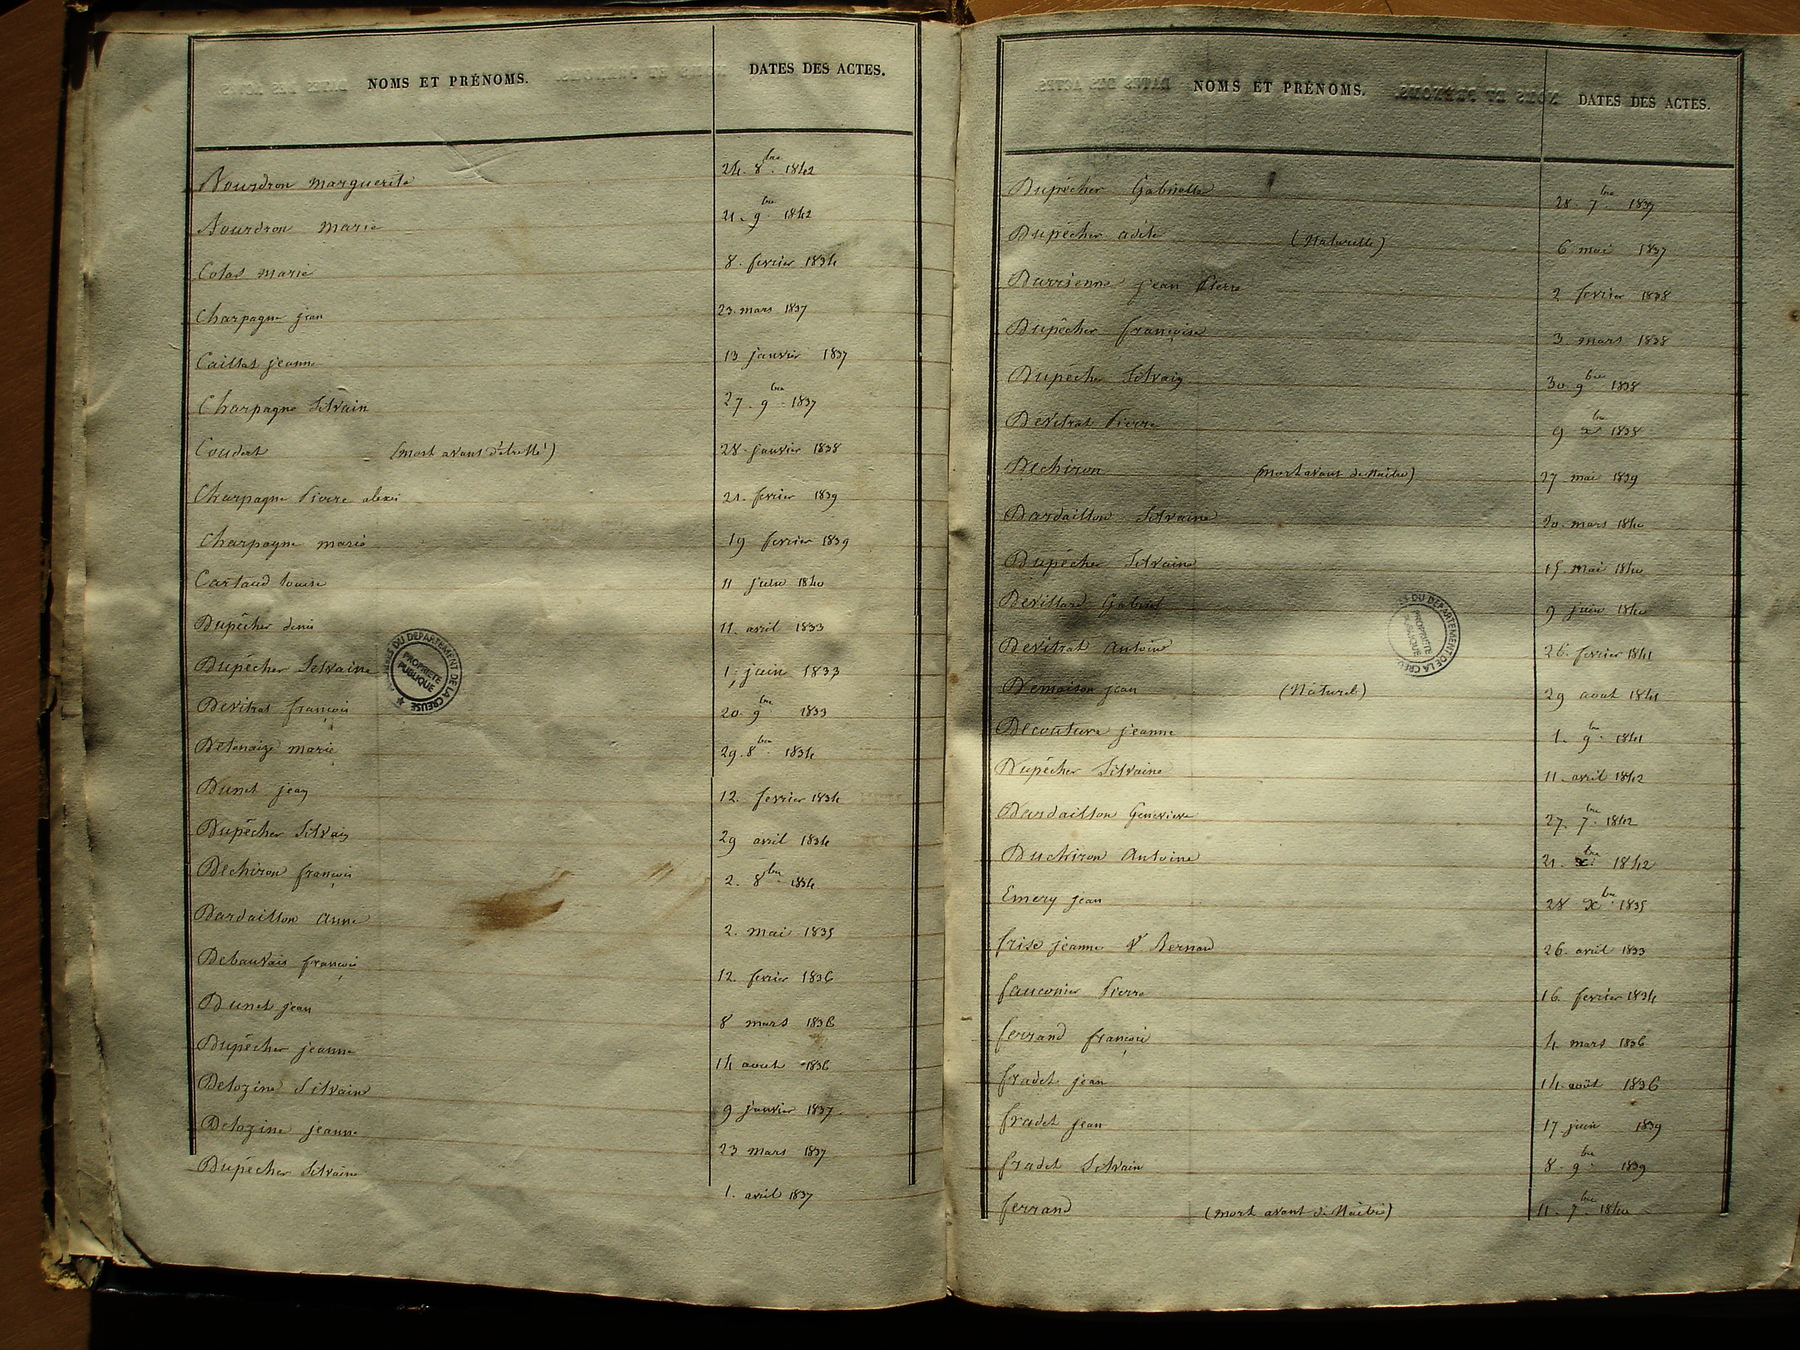 NOMS ET PRÉNOMS. DATES DES ACTES.
Bourdron marguerite 24. 8bre. 1842
Bourdron marie 21. 9bre. 1842
Colas marie 8. fevrier 1834
Charpagne jean 23. mars 1837
Caillas jeanne 13 janvier 1837
Charpagne Silvain 27. 9bre. 1837
Coudert (mort avant d'être né) 28. janvier 1838
Charpagne Pierre alexis 21. fevrier 1839
Charpagne marie 19 fevrier 1839
Cartaud louise 11 juin 1840
Dupêcher denis 11. avril 1833
Dupêcher Silvaine 1. juin 1833
Devitrat françois 20. 9bre 1833
Delenaize marie 29. 8bre. 1834
Dunet jean 12. fevrier 1834
Dupêcher Silvain 29 avril 1834
Dechiron françois 2. 8bre 1834
Dardaillon Anne 2. mai 1835
Debauvais françois 12. fevrier 1836
Dunet jean 8 mars 1836
Dupêcher jeanne 14 aout 1836
Delozine Silvain 9 janvier 1837
Delozine jeanne 23 mars 1837
Dupêcher Silvaine 1. avril 1837
DU DEPARTEMENT DE LA CREUSE
PROPRIETE
PUBLIQUE
NOMS ET PRÉNOMS. DATES DES ACTES.
Dupêcher Gabrielle 28. 7bre 1837
Dupêcher adèle (Naturelle) 6 mai 1837
Darsienne jean Pierre 2 fevrier 1838
Dupêcher françoise 3. mars 1838
Dupêche Silvain 30. 9bre 1838
Devitrat Pierre 9 xbre 1838
Dechiron (mort avant de naître) 27 mai 1839
Dardaillon Silvaine 20. mars 1840
Dupêcher Silvaine 15. mai 1840
Devillard Gabriel 9 juin 1840
Devitrat Antoine 26. fevrier 1841
Demaison jean (Naturel) 29 aout 1841
Decouture jeanne 1. 9bre. 1841
Dupêcher Silvaine 11. avril 1842
Dardaillon Genevieve 27. 7bre. 1842
Duchiron Antoine 21. xbre. 1842
Emery jean 28 xbre. 1835
frise jeanne Ve Bernard 26. avril 1833
fauconier Pierre 16. fevrier 1834
ferrand françois 4. mars 1836
fradet jean 14. août 1836
fradet jean 17 juin 1839
fradet Silvain 8. 9bre. 1839
ferrand (mort avant de naître) 11. 7bre. 1840
DU DEPARTEMENT DE LA CREUSE
PROPRIETE
PUBLIQUE